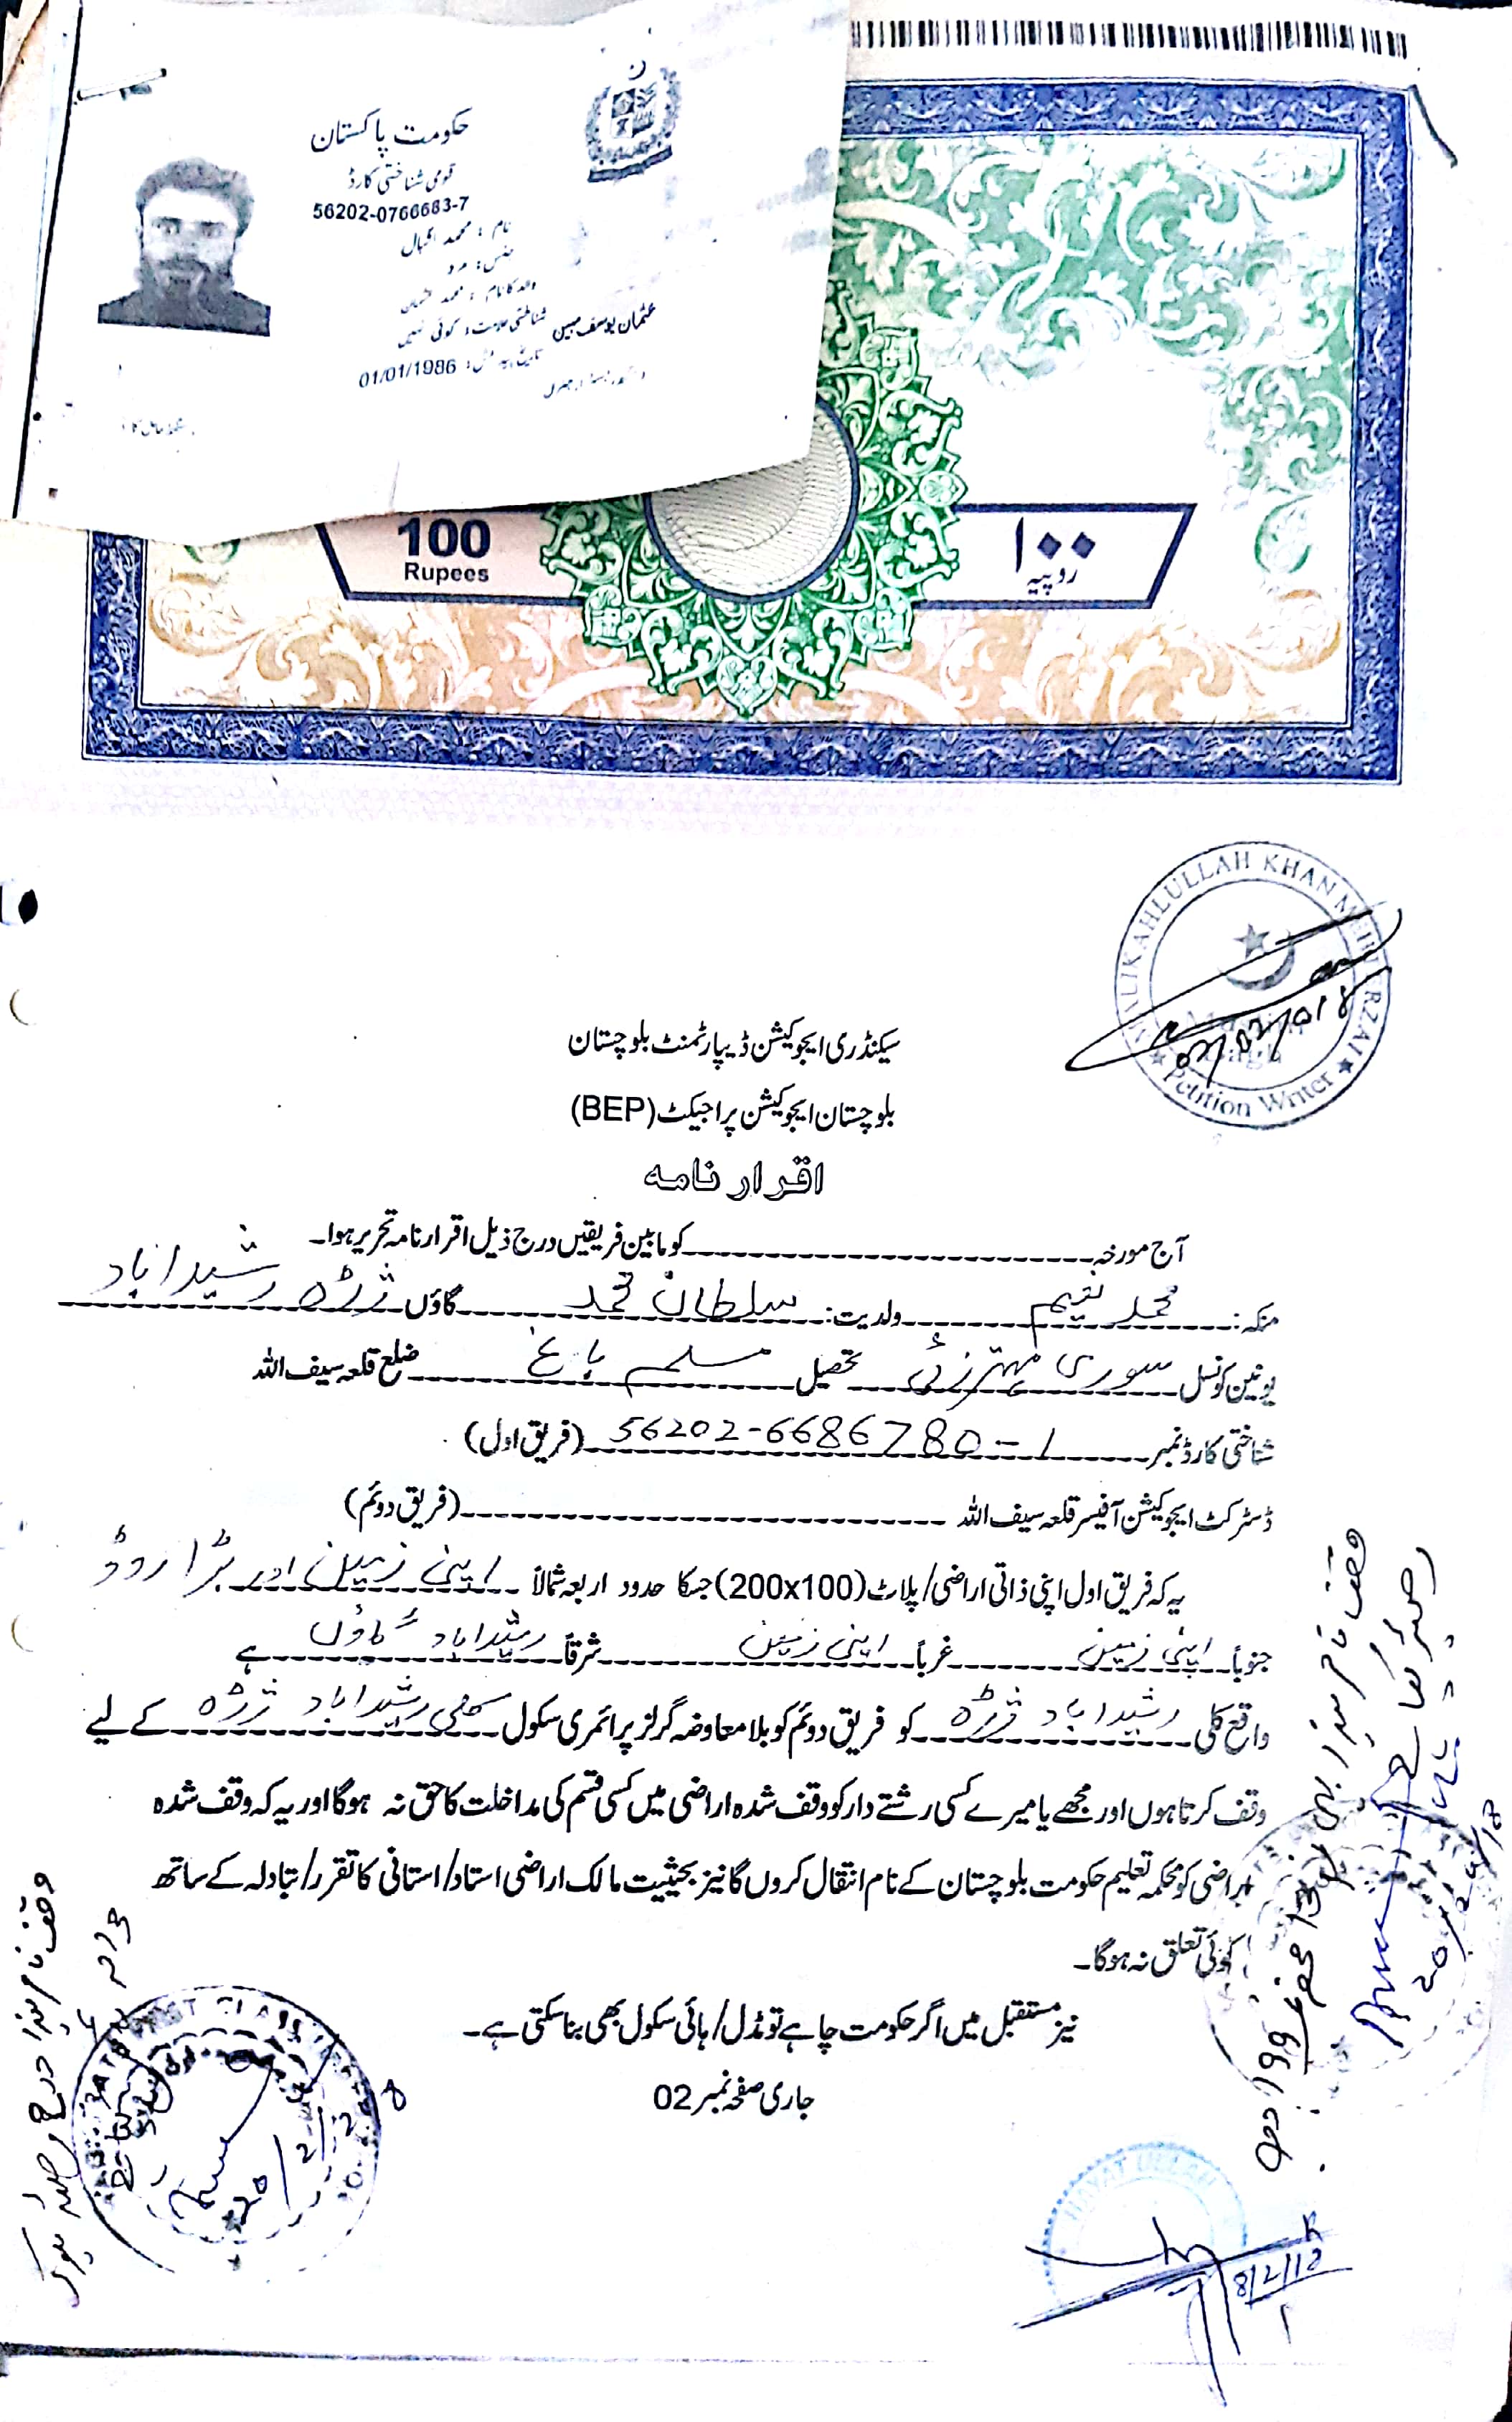 حکومت پاکستان
قومی شناختی کارڈ
56202-0766663-7
نام : محمد اقبال
جنس: مرد
والد کا نام : محمد عثمان
شناختی علامت: کوئی نہیں
عثمان یوسف مبین
تاریخ پیدائش: 01/01/1986
100
Rupees
۱۰۰
روپیہ
MALIKAHLULLAH KHAN MEHTERZAI
Petition Writer
سیکنڈری ایجوکیشن ڈیپارٹمنٹ بلوچستان
بلوچستان ایجوکیشن پراجیکٹ (BEP)
اقرار نامہ
آج مورخہ کو مابین فریقین درج ذیل اقرار نامہ تحریر ہوا۔
منکہ: محمد نعیم ولدیت: سلطان محمد گاؤں ژڑہ رشیداباد
یونین کونسل سوری مہترزئی تحصیل مسلم باغ ضلع قلعہ سیف اللہ
شناختی کارڈ نمبر 56202-6686780-1 (فریق اول)
ڈسٹرکٹ ایجوکیشن آفیسر قلعہ سیف اللہ (فریق دوئم)
یہ کہ فریق اول اپنی ذاتی اراضی/پلاٹ (200x100) جسکا حدود اربعہ شمالاً اپنی زمین اور بڑا روڈ
جنوباً اپنی زمین غرباً اپنی زمین شرقاً رشیداباد گاؤں ہے
واقع کلی رشیداباد ژڑہ کو فریق دوئم کو بلا معاوضہ گرلز پرائمری سکول کلی رشیداباد ژڑہ کے لیے
وقف کرتا ہوں اور مجھے یا میرے کسی رشتے دار کو وقف شدہ اراضی میں کسی قسم کی مداخلت کا حق نہ ہوگا اور یہ کہ وقف شدہ
اراضی کو محکمہ تعلیم حکومت بلوچستان کے نام انتقال کروں گا نیز بحیثیت مالک اراضی استاد/استانی کا تقرر/تبادلہ کے ساتھ
کوئی تعلق نہ ہوگا۔
نیز مستقبل میں اگر حکومت چاہے تو مڈل/ہائی سکول بھی بنا سکتی ہے۔
جاری صفحہ نمبر 02
HAYAT ULLAH
8/2/18